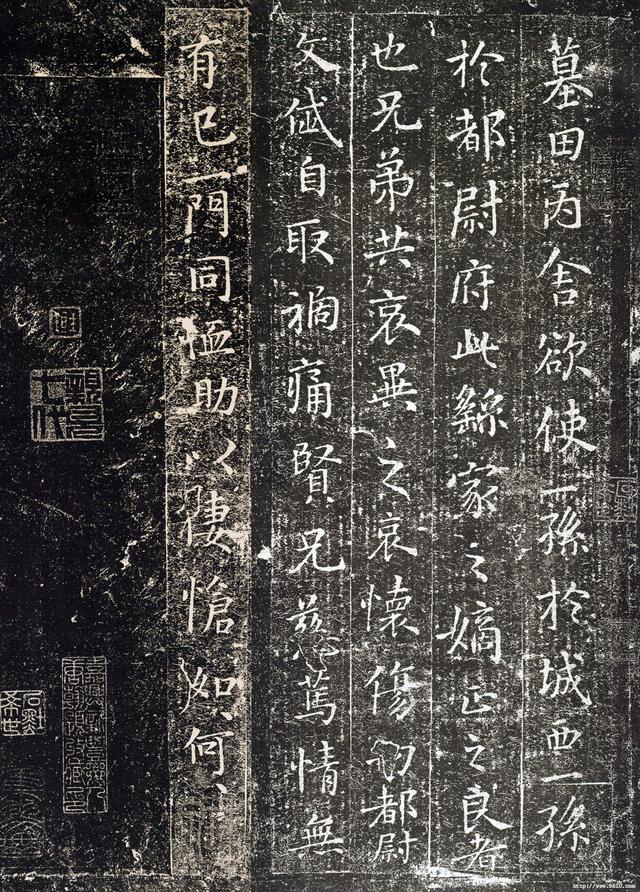 墓田丙舍欲使一孫於城西一孫
於都尉府此繇家之嫡正之良者
也兄弟共哀異之哀懷傷切都尉
文岱自取禍痛賢兄慈篤情無
有已一門同恤助以悽愴如〻何〻
http://www.9610.com